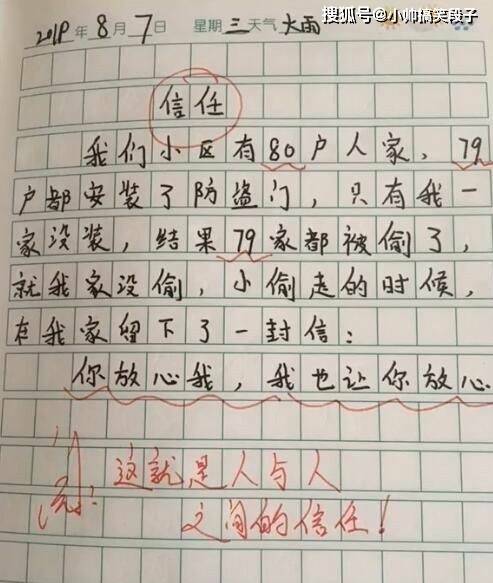 搜狐号@小帅搞笑段子
2019年8月7日 星期三 天气大雨
信任
我们小区有80户人家，79
户都安装了防盗门，只有我一
家没装，结果79家都被偷了，
就我家没偷，小偷走的时候，
在我家留下了一封信：
你放心我，我也让你放心
这就是人与人
之间的信任！